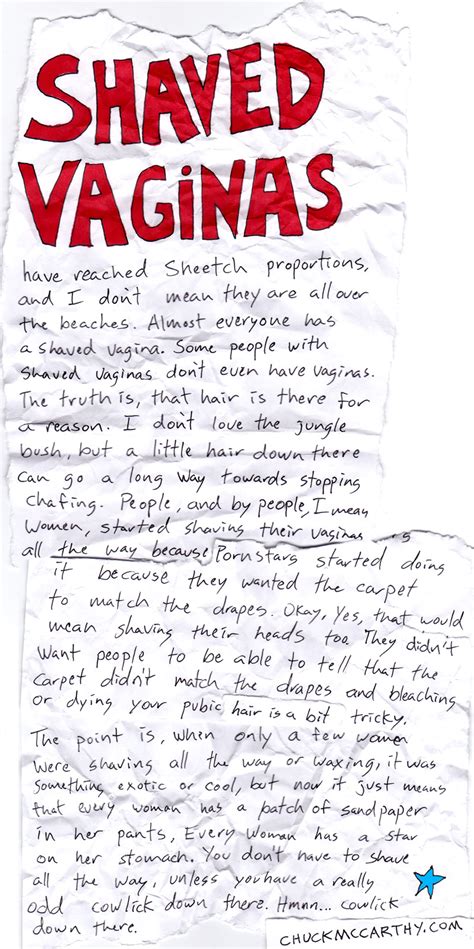 SHAVED
VAGiNAS
have reached Sheetch proportions,
and I don't mean they are all over
the beaches. Almost everyone has
a shaved vagina. Some people with
Shaved vaginas don't even have vaginas.
The truth is, that hair is there for
a reason. I don't love the jungle
bush, but a little hair down there
can go a long way towards stopping
chafing. People, and by people, I mean
Women, started shaving their vaginas
all the way because Pornstars started doing
it because they wanted the carpet
to match the drapes. Okay, Yes, that would
mean shaving their heads too. They didn't
want people to be able to tell that the
carpet didn't match the drapes and bleaching
or dying your pubic hair is a bit tricky.
The point is, when only a few women
were shaving all the way or waxing, it was
something exotic or cool, but now it just means
that every woman has a patch of sandpaper
in her pants, Every woman has a star
on her stomach. You don't have to shave
all the way, unless you have a really
odd cowlick down there. Hmnn... cowlick
down there.
CHUCKMCCARTHY.COM